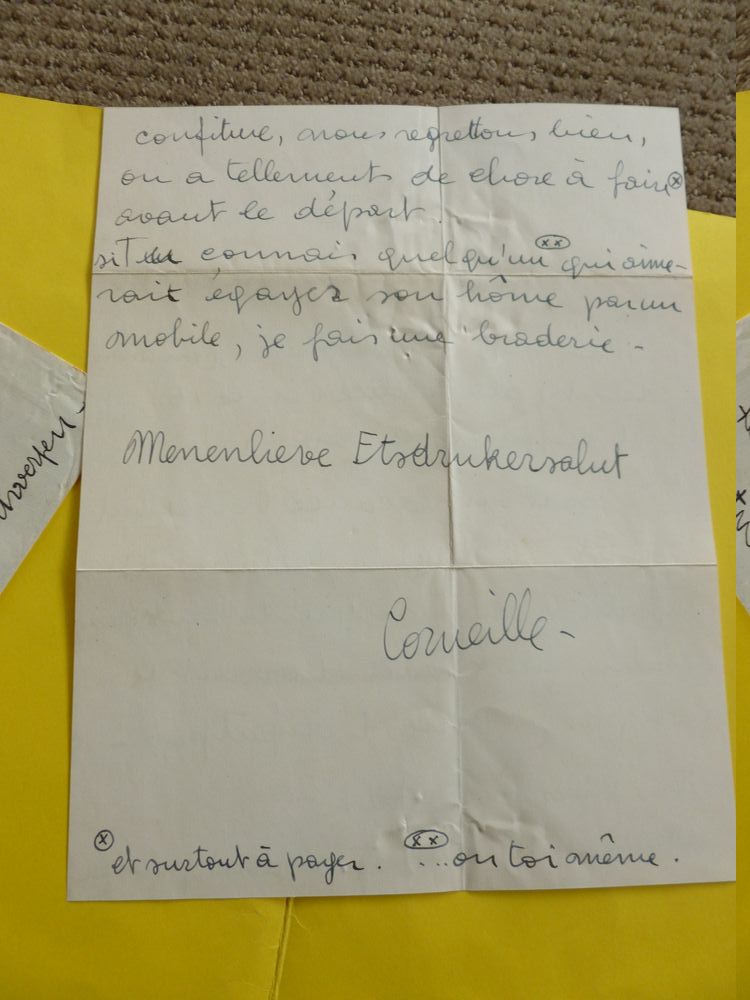 confiture, nous regrettons bien,
on a tellements de chose à faire ⓧ
avant le départ.
si Tu connais quelqu'un (xx) qui aime-
rait égayer son hôme par un
mobile, je fais une braderie -
Menenlieve Etsdrukersalut
Corneille -
ⓧ et surtout à payer. (xx) ...ou toi même.